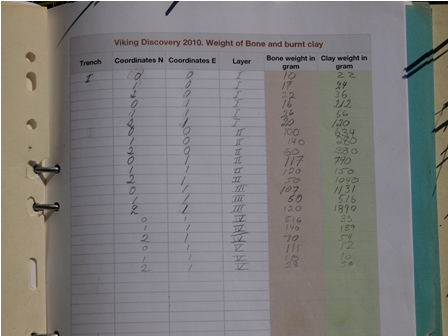 Viking Discovery 2010. Weight of Bone and burnt clay
Trench Coordinates N Coordinates E Layer Bone weight in gram Clay weight in gram
I 0 0 I 10 22
1 0 I 17 24
2 0 I 22 36
0 1 I 16 212
1 1 I 26 56
2 1 I 20 120
0 0 II 100 634
1 0 II 140 280
2 0 II 60 380
0 1 II 117 770
1 1 II 120 150
2 1 II 50 1040
0 1 III 107 1131
1 1 III 60 516
2 1 III 120 1890
0 1 IV 516 33
1 1 IV 140 189
2 1 IV 70 54
0 1 V 111 12
1 1 V 10
2 1 V